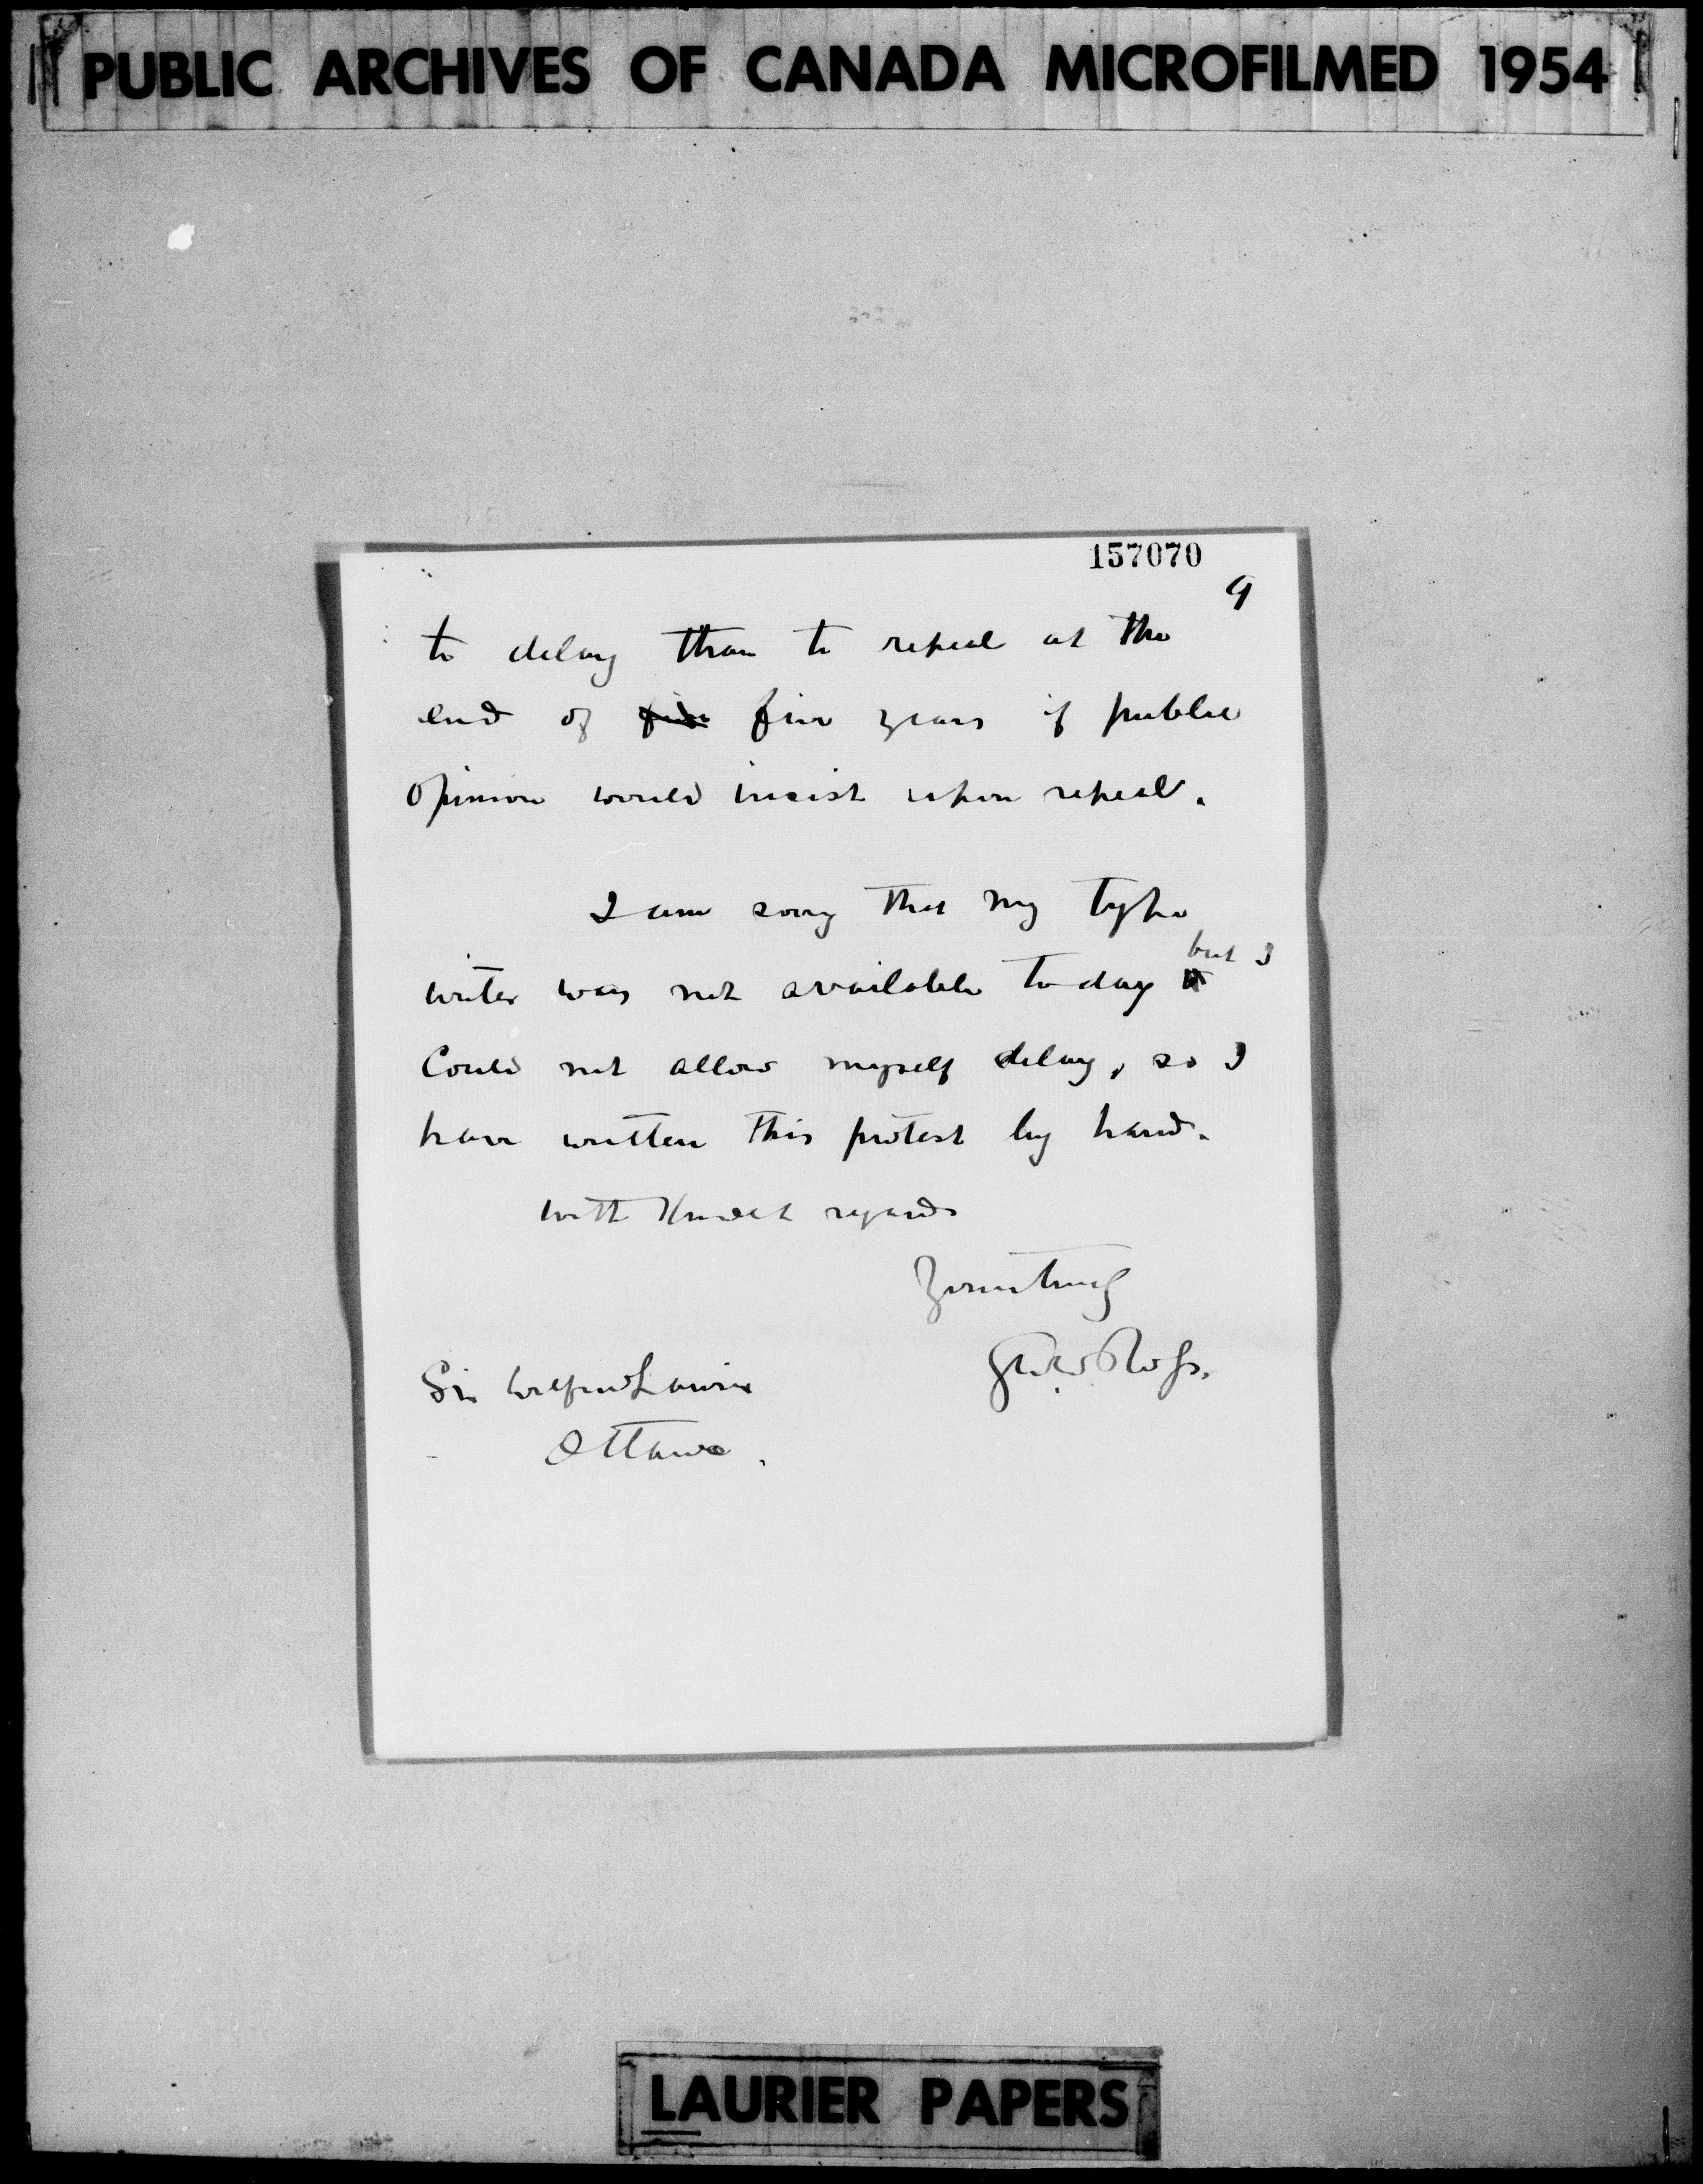 PUBLIC ARCHIVES OF CANADA MICROFILMED 1954
157070
9
to delay than to repeal at the
end of five years if public
opinion would insist upon repeal.
I am sorry that my type
writer was not available to day but I
could not allow myself delay, so I
have written this protest by hand.
With kindest regards
Yours truly
Geo W Ross.
Sir Wilfrid Laurier
Ottawa.
LAURIER PAPERS